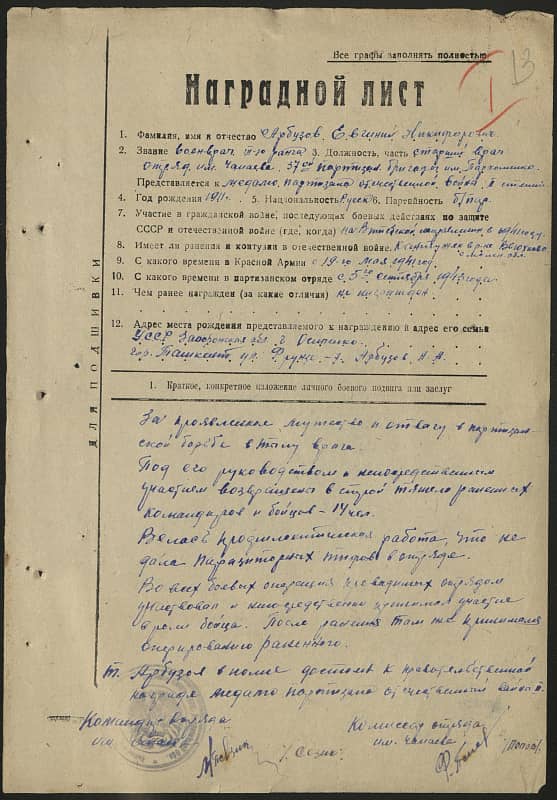 Все графы заполнять полностью
13
Наградной лист
1. Фамилия, имя и отчество Арбузов Евгений Никифорович
2. Звание военврач III-го ранга 3. Должность, часть старший врач
отряд. им. Чапаева, 37ой партизан. бригады им. Пархоменко.
Представляется к медалю, партизана отечественной войны II степени
4. Год рождения 1911 . 5. Национальность Русск 6. Партийность б/пар.
7. Участие в гражданской войне, последующих боевых действиях по защите
СССР и отечественной войне (где, когда) на Витебском направлении в 1941 году.
8. Имеет ли ранения и контузии в отечественной войне.
9. С какого времени в Красной Армии с 19-го мая 1941 год.
10. С какого времени в партизанском отряде с 5го сентября 1943 года.
11. Чем ранее награжден (за какие отличия) не награжден
12. Адрес места рождения представляемого к награждению и адрес его семьи
УССР Запорожская обл г Осипенко
гор. Ташкент ул. Арбузов
ДЛЯ ПОДШИВКИ
1. Краткое, конкретное изложение личного боевого подвига или заслуг
За проявленное мужество и отвагу в партизан-
ской борьбе в тылу врага.
Под его руководством и непосредственным
участием возвращено в строй тяжело раненных
командиров и бойцов - 14 чел.
Велась профилактическая работа, что не
дала паразиторных тифов в отряде.
Во всех боевых операция проводимых отрядом
участвовал и непосредственно принимал участие
в роли бойца. После ранения там же принимался
оперированию раненного.
т. Арбузов вполне достоин к правительственной
награде медалю партизана отечественной войны II
Командир отряда
им. Чапаева
Комиссар отряда
им. Чапаева
/Попов/